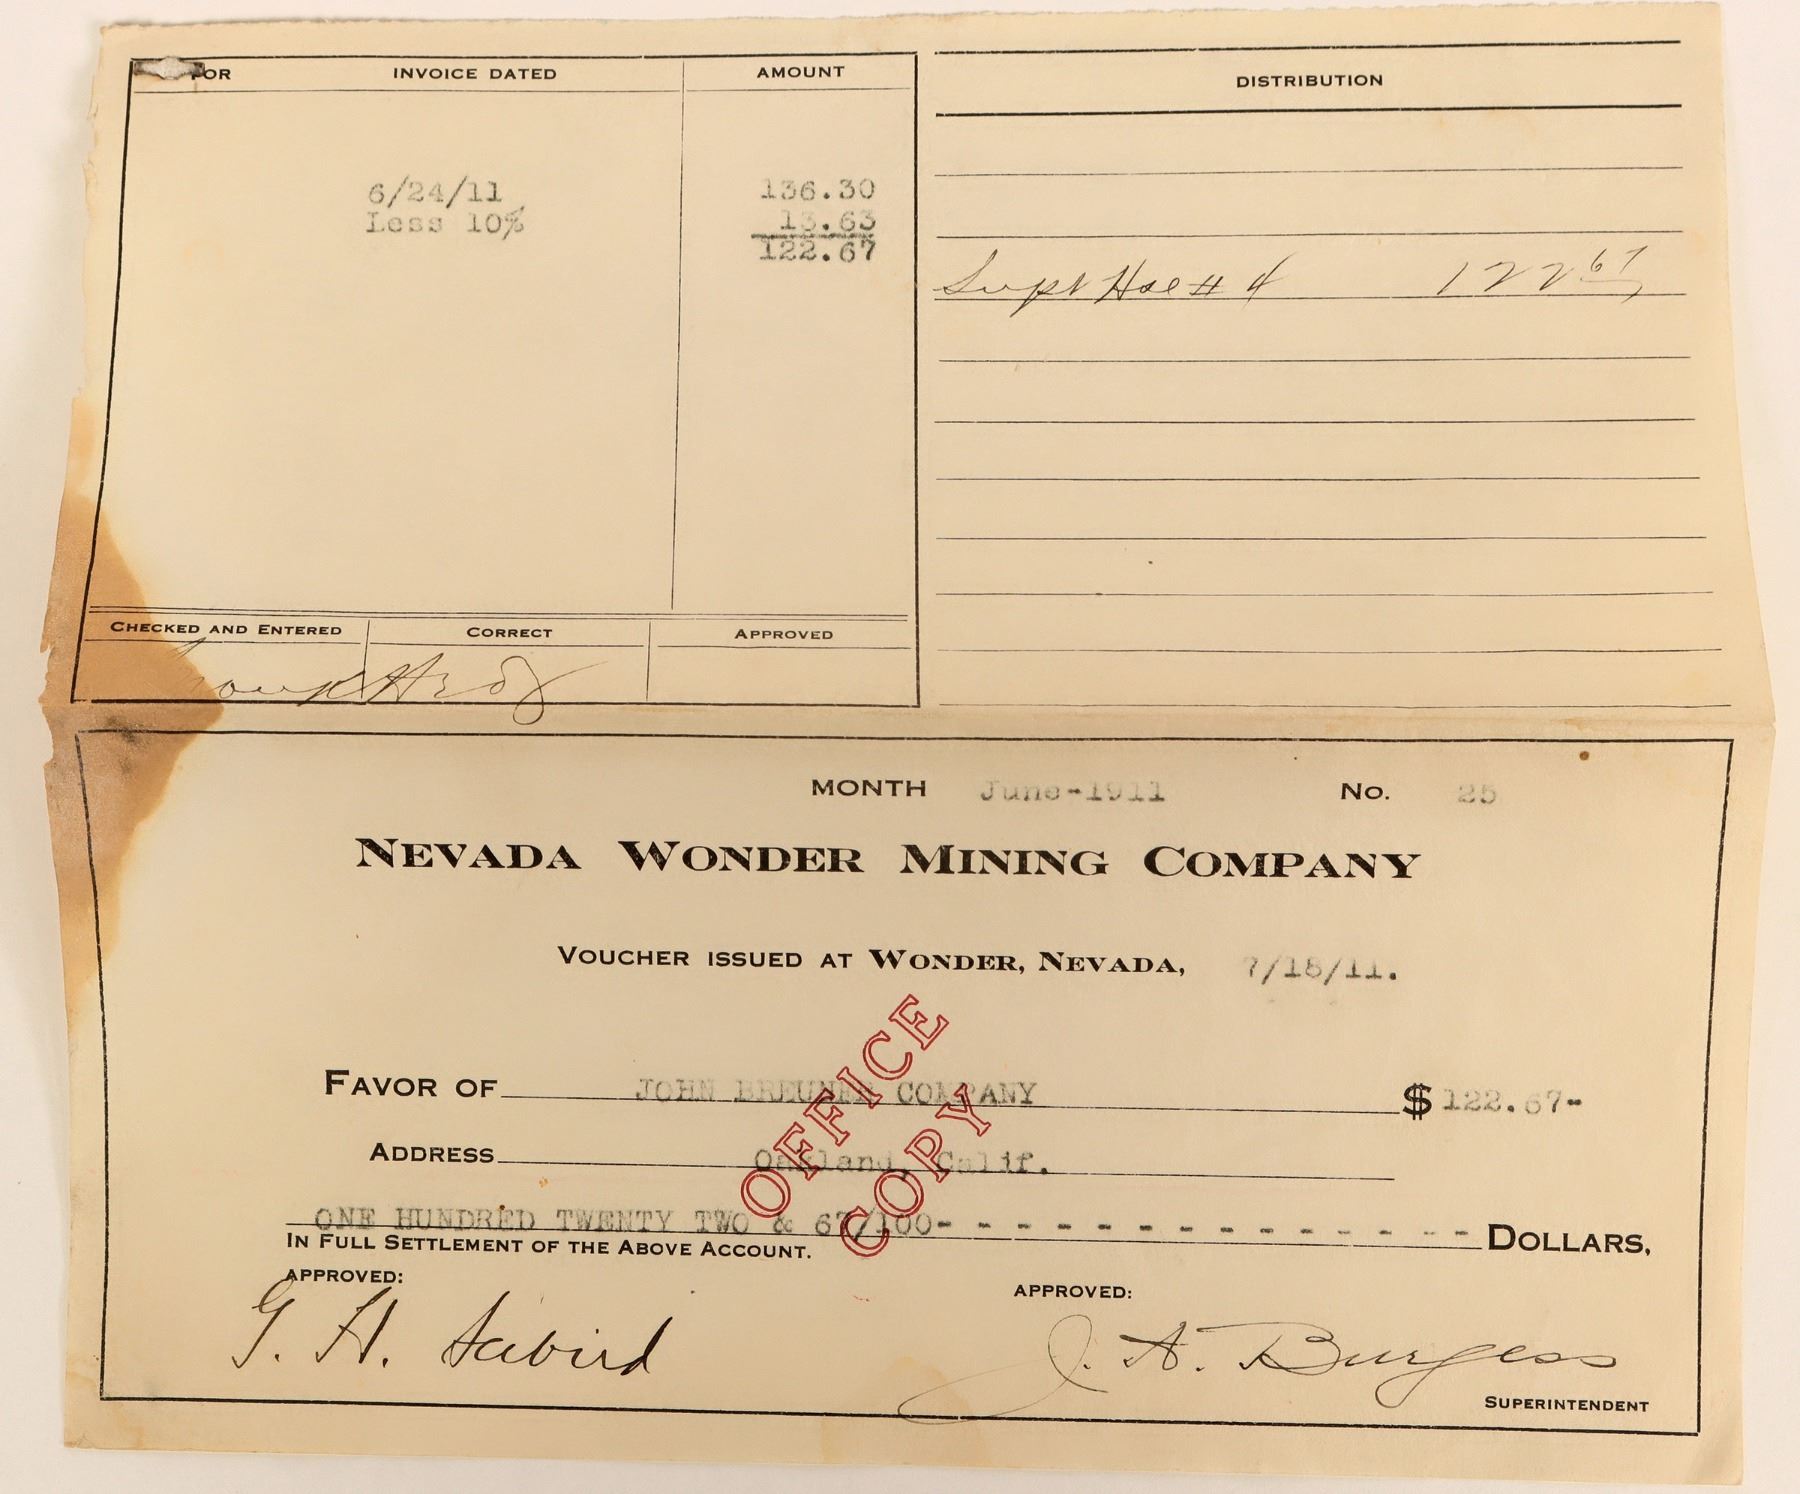 FOR INVOICE DATED AMOUNT
6/24/11 136.30
Less 10% 13.63
122.67
CHECKED AND ENTERED CORRECT APPROVED
DISTRIBUTION
Supt Hse # 4 122 67
MONTH June-1911 No. 25
NEVADA WONDER MINING COMPANY
VOUCHER ISSUED AT WONDER, NEVADA, 7/18/11.
FAVOR OF JOHN BREUNER COMPANY $ 122.67-
ADDRESS Oakland, Calif.
OFFICE
COPY
ONE HUNDRED TWENTY TWO & 67/100- - - - - - - - - - - - - - DOLLARS,
IN FULL SETTLEMENT OF THE ABOVE ACCOUNT.
APPROVED: APPROVED:
G. H. J. A. Burgess
SUPERINTENDENT